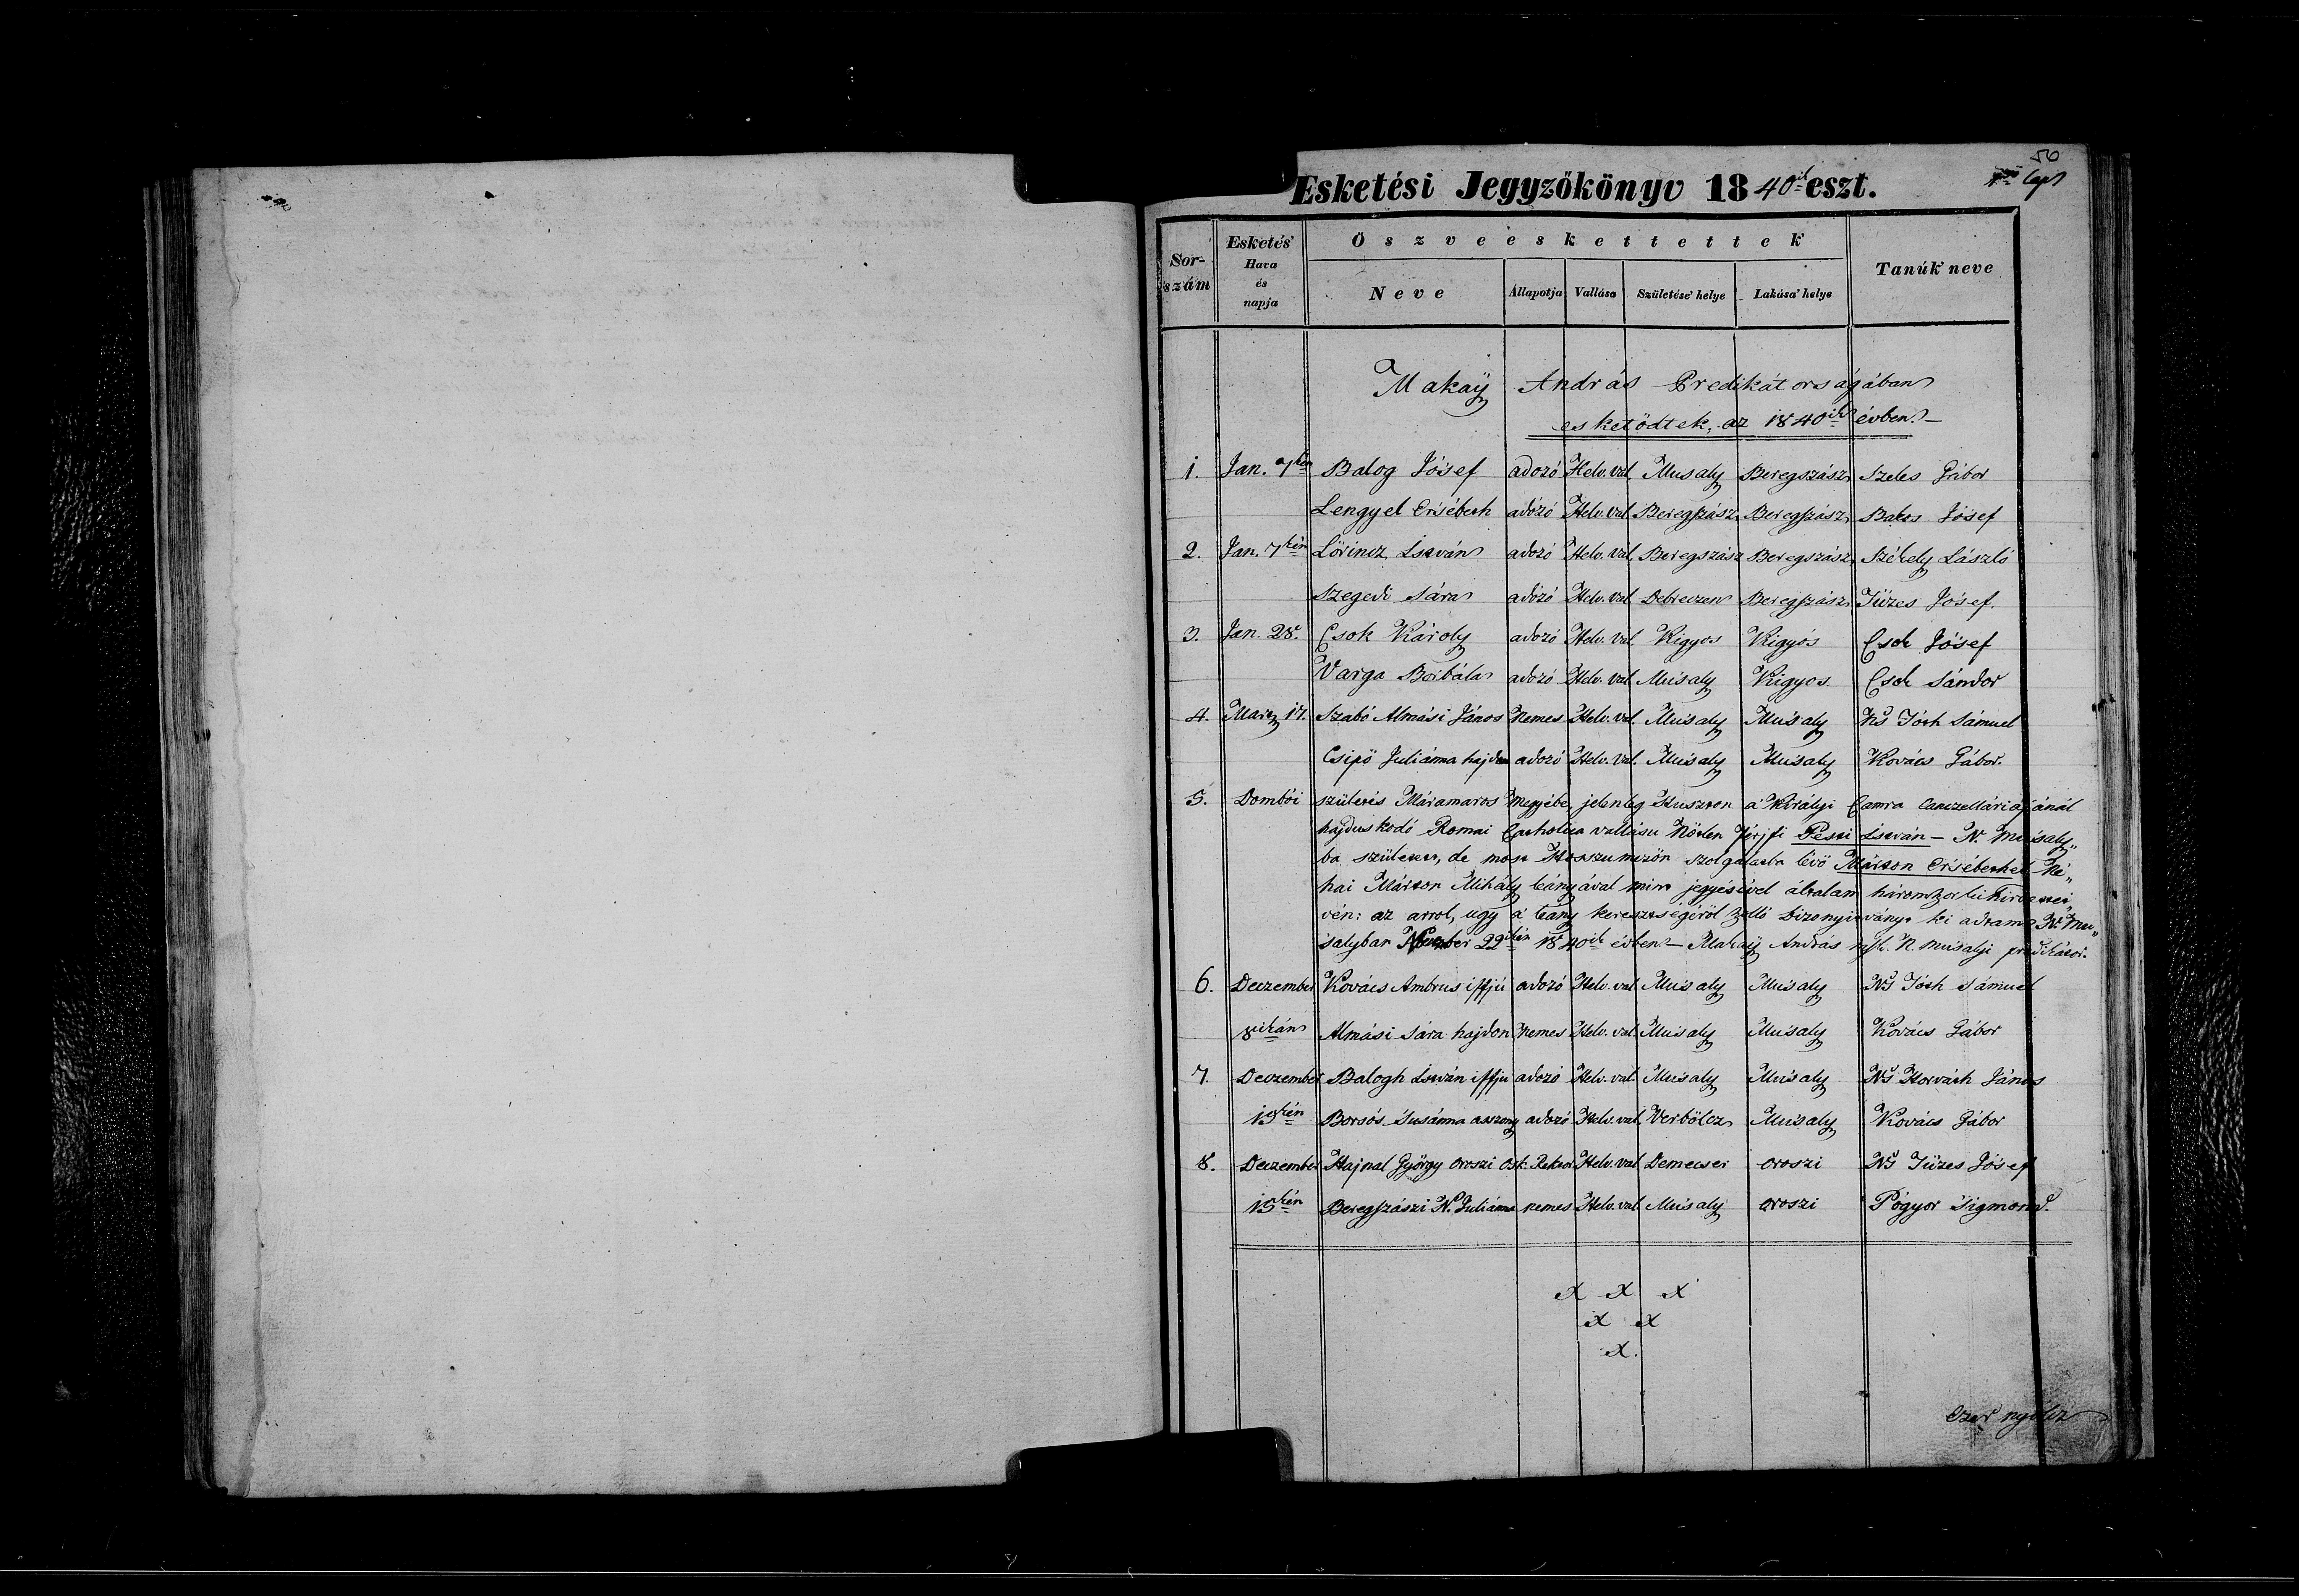 56
Esketési Jegyzőkönyv 1840ik eszt.
Sor-szám Esketés' Hava és napja Öszveeskettettek Tanúk' neve
Neve Állapotja Vallása Születése' helye Lakása' helye
Makaÿ András Predikátorságában
esketödtek, az 1840ik évben.-
1. Jan. 7kén Balog Jósef adozó Helv. val. Musaly Beregszász Szeles Gábor
Lengyel Ersébeth adózó Helv. val. Beregszász Beregszász Jósef
2. Jan. 7kén Lőrincz István adozó Helv. val. Beregszász Beregszász Székely László
Szegedi Sára adózó Helv. val. Debreczen Beregszász Tüzes Jósef.
3. Jan. 28. Csok Károly adozó Helv. val. Kigyos Kigyós Csok Jósef
Varga Borbála adozó Helv. val. Musaly Kigyos Csok Sándor
4. Marcz 17. Szabó Almási János Nemes Helv. val. Musaly Musaly Ns Tóth Sámuel
Csipö Juliánna hajdon adozó Helv. val. Musaly Musaly Kovács Gábor.
5. Dombói születés Máramaros Megyébe, jelenleg Huszton a' Királyi Camra Canzelláriájánál
hajduskodó Romai Catholica vallásu Nötlen Férjfi Peszi István – N. Musaly„
ba született, de most Hosszumezön szolgálatba lévö Márton Ersébethel Né„
hai Márton Mihály leányával mint jegyesével általam háromszor
vén: az arrol, ugy a' leány keresztségéröl szólló bizonyitványt ki adtam N. Mu„
salyban November 22dikén 1840ik évben – Makaÿ András N. Musalyi predikátor.
6. Deczember Kovács Ambrus iffjú adozó Helv. val. Musaly Musaly Ns Tóth Sámuel
8ikán Almási Sára hajdon Nemes Helv. val. Musaly Musaly Kovács Gábor
7. Deczember Balogh István iffju adozó Helv. val. Musaly Musaly Ns Horváth János
15kén Borsós Susánna asszony adozó Helv. val. Verbölcz Musaly Kovács Gábor
8. Deczember Hajnal György oroszi Osk. Rektor Helv. val. Demecser oroszi Ns Tüzes Jósef
15kén Beregszászi N. Juliánna nemes Helv. val. Musaly oroszi Pógyor Sigmond.
x x x
x x
x.